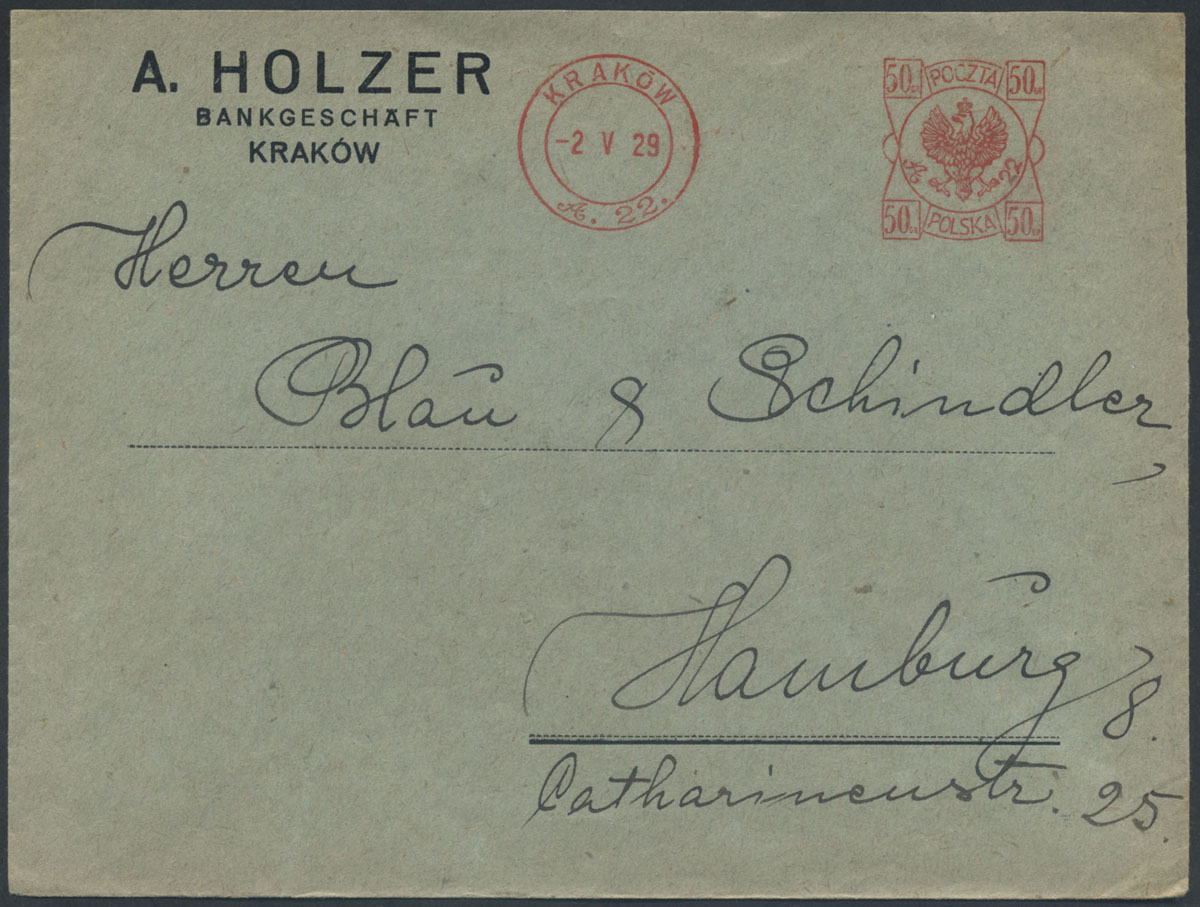 A. HOLZER
BANKGESCHÄFT
KRAKÓW
KRAKÓW
-2 V 29
A. 22.
50 GR POCZTA 50 GR
A 22
50 GR POLSKA 50 GR
Herren
Blau & Schindler,
Hamburg 8.
Catharinenstr. 25.